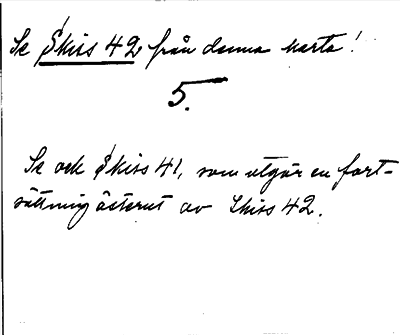 Se Skiss 42 från denna karta!
5.
Se och Skiss 41, som utgör en fort-
sättning österut av Skiss 42.